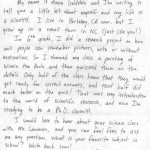 My name is
and I'm writing to
tell you a little bit about myself and my life as
a scientist. I live in Berkeley, CA now, but I
grew up in a small town in NC (just like you!)
In 8th grade, I did a research project on how
well people can remember pictures, with or without
exploration. So I showed my class a painting of
the Paris and then quizzed them on the
details. Only half of the class knew that they would
get ready for correct answers, and that half did
much better on the quiz! That was my introduction
to the world of scientific research, and now I'm
studying to be a Ph.D. scientist.
I would love to hear about your science class
with Mr. and you can feel free to ask
me any question. What is your favorite subject in
school? Write back soon!